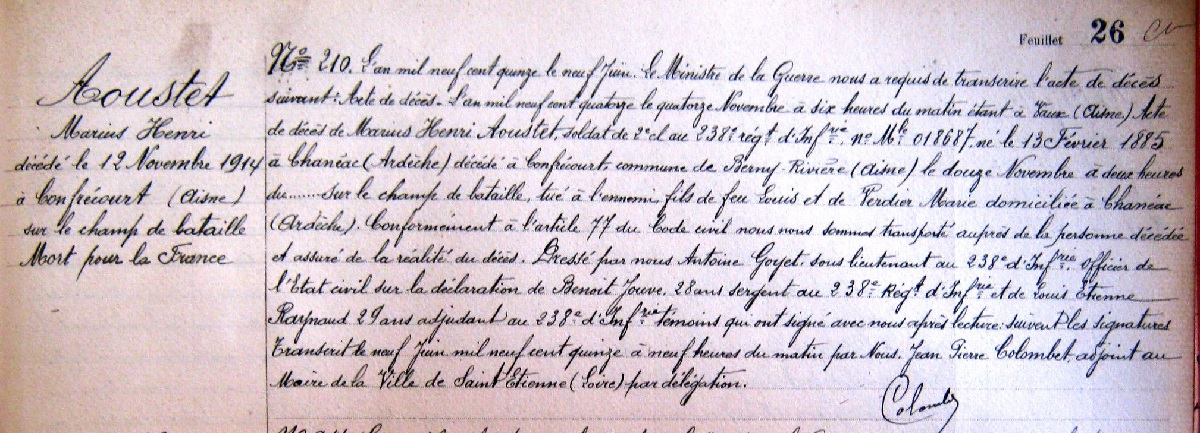 Feuillet 26
Aoustet
Marius Henri
décédé le 12 Novembre 1914
à Confrécourt (Aisne)
sur le champ de bataille
Mort pour la France
No 210. L'an mil neuf cent quinze le neuf Juin. Le Ministre de la Guerre nous a requis de transcrire l'acte de décès
suivant: Acte de décès. L'an mil neuf cent quatorze le quatorze Novembre à six heures du matin étant à Vaux (Aisne) Acte
de décès de Marius Henri Aoustet, soldat de 2e cl au 238e régt d'Infrie no Mle 018687. né le 13 Février 1885
à Chanéac (Ardèche) décédé à Confrécourt, commune de Berny-Rivière (Aisne) le douze Novembre à deux heures
du ...... sur le champ de bataille, tué à l'ennemi, fils de feu Louis et de Verdier Marie domiciliée à Chanéac
(Ardèche). Conformément à l'article 77 du Code civil nous nous sommes transporté auprès de la personne décédée
et assuré de la réalité du décès. Dressé par nous Antoine Goyet. sous lieutenant au 238e d'Infrie. Officier de
l'Etat civil sur la déclaration de Benoit Jouve. 28 ans sergent au 238e Régt d'Infrie et de Louis Etienne
Raynaud 29 ans adjudant au 238e d'Infrie témoins qui ont signé avec nous après lecture: suivent les signatures
Transcrit le neuf Juin mil neuf cent quinze à neuf heures du matin par Nous. Jean Pierre Colombet, adjoint au
Maire de la Ville de Saint Etienne (Loire) par délégation.